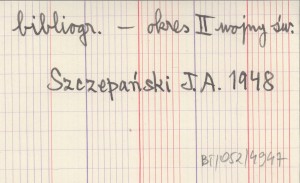 bibliogr. – okres II wojny św.
Szczepański J.A. 1948
BT/1052/4947